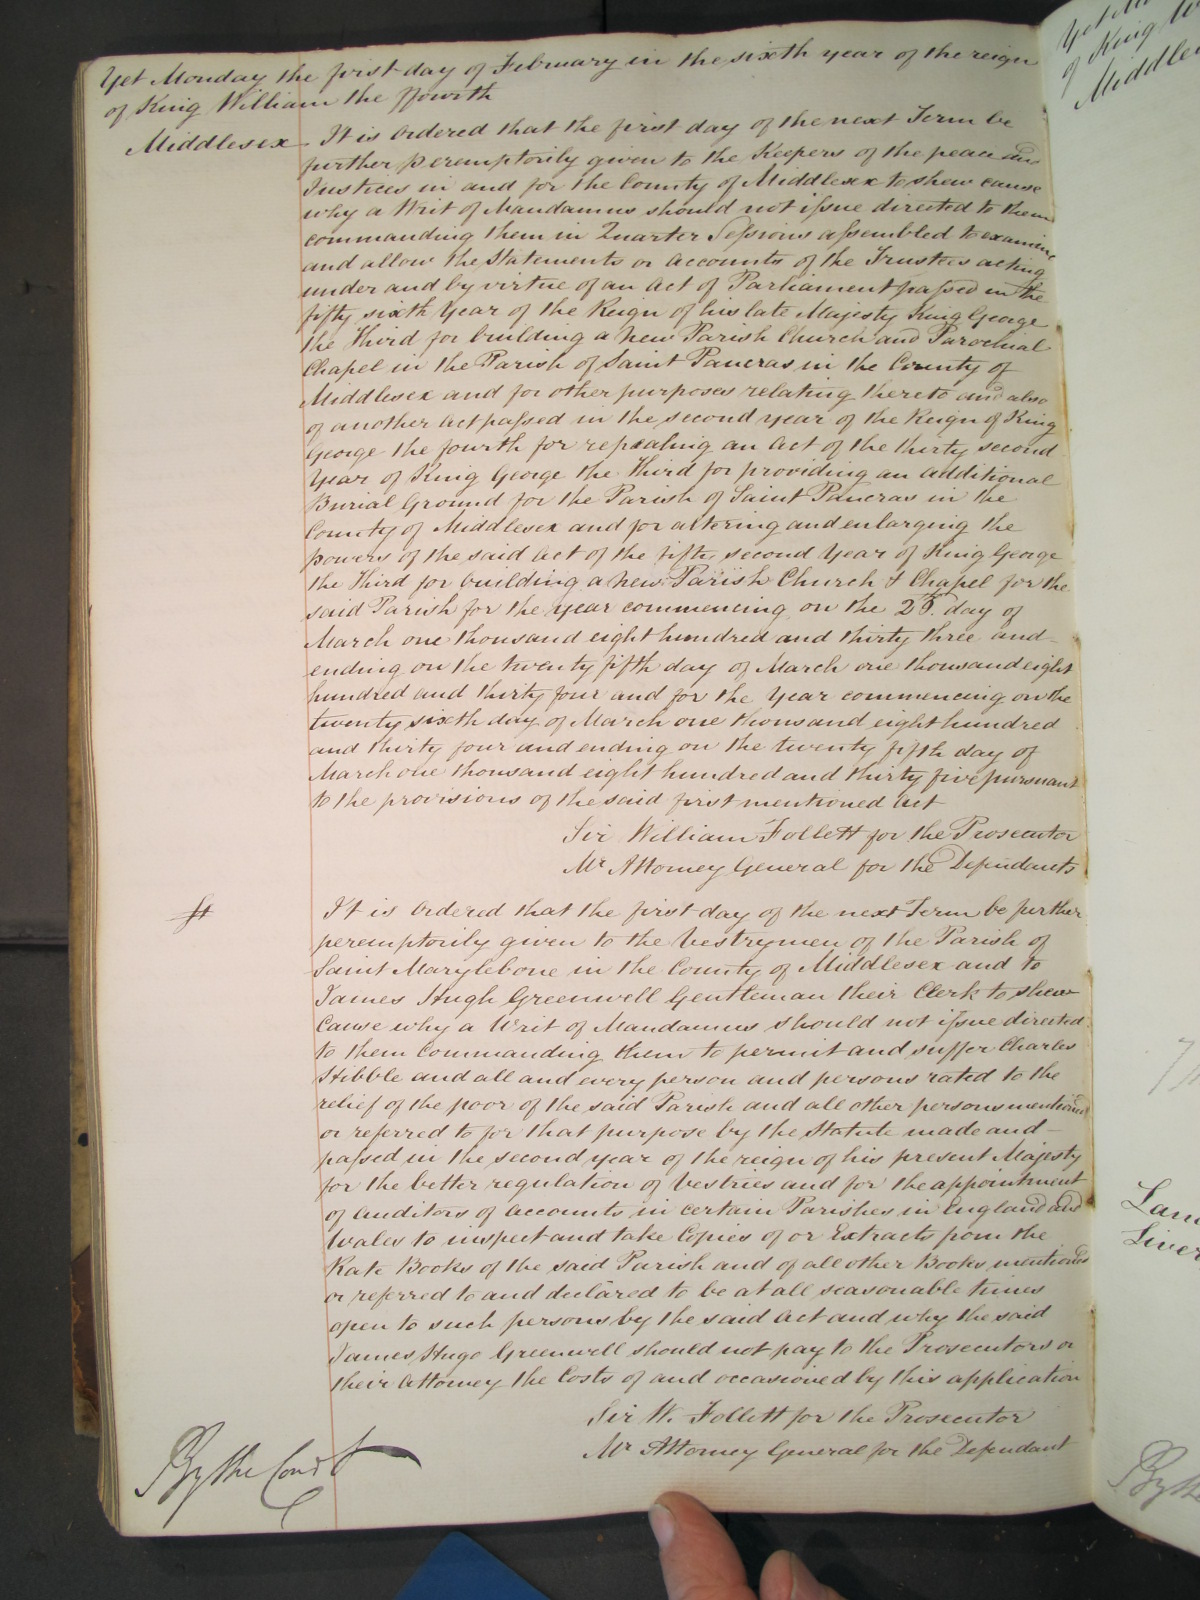 Yet Monday the first day of February in the sixth year of the reign
of King William the ffourth
Middlesex It is Ordered that the first day of the next Term be
further peremptorily given to the Keepers of the peace and
Justices in and for the County of Middlesex to shew cause
why a Writ of Mandamus should not issue directed to them
commanding them in Quarter Sessions assembled to examine
and allow the Statements or Accounts of the Trustees acting
under and by virtue of an Act of Parliament passed in the
fifty sixth Year of the Reign of his late Majesty King George
the Third for building a new Parish Church and Parochial
Chapel in the Parish of Saint Pancras in the County of
Middlesex and for other purposes relating thereto and also
of another Act passed in the second year of the Reign of King
George the fourth for repealing an Act of the thirty second
Year of King George the Third for providing an additional
Burial Ground for the Parish of Saint Pancras in the
County of Middlesex and for altering and enlarging the
powers of the said Act of the fifty second Year of King George
the Third for building a new Parish Church & Chapel for the
said Parish for the year commencing on the day of
March one thousand eight hundred and thirty three and
ending on the twenty fifth day of March one thousand eight
hundred and thirty four and for the Year commencing on the
twenty sixth day of March one thousand eight hundred
and thirty four and ending on the twenty fifth day of
March one thousand eight hundred and thirty five pursuant
to the provisions of the said first mentioned Act
Sir William Follett for the Prosecutor
Mr Attorney General for the Defendants
It is Ordered that the first day of the next Term be further
peremptorily given to the Vestrymen of the Parish of
Saint Marylebone in the County of Middlesex and to
James Hugh Greenwell Gentleman their Clerk to shew
Cause why a Writ of Mandamus should not issue directed
to them Commanding them to permit and suffer Charles
Hibble and all and every person and persons rated to the
relief of the poor of the said Parish and all other persons mentioned
or referred to for that purpose by the Statute made and
passed in the second year of the reign of his present Majesty
for the better regulation of Vestries and for the appointment
of Auditors of Accounts in certain Parishes in England and
Wales to inspect and take Copies of or Extracts from the
Rate Books of the said Parish and of all other Books mentioned
or referred to and declared to be at all seasonable times
open to such persons by the said Act and why the said
James Hugo Greenwell should not pay to the Prosecutors or
their Attorney the Costs of and occasioned by this application
Sir W. Follett for the Prosecutor
Mr Attorney General for the Defendant
By the Court